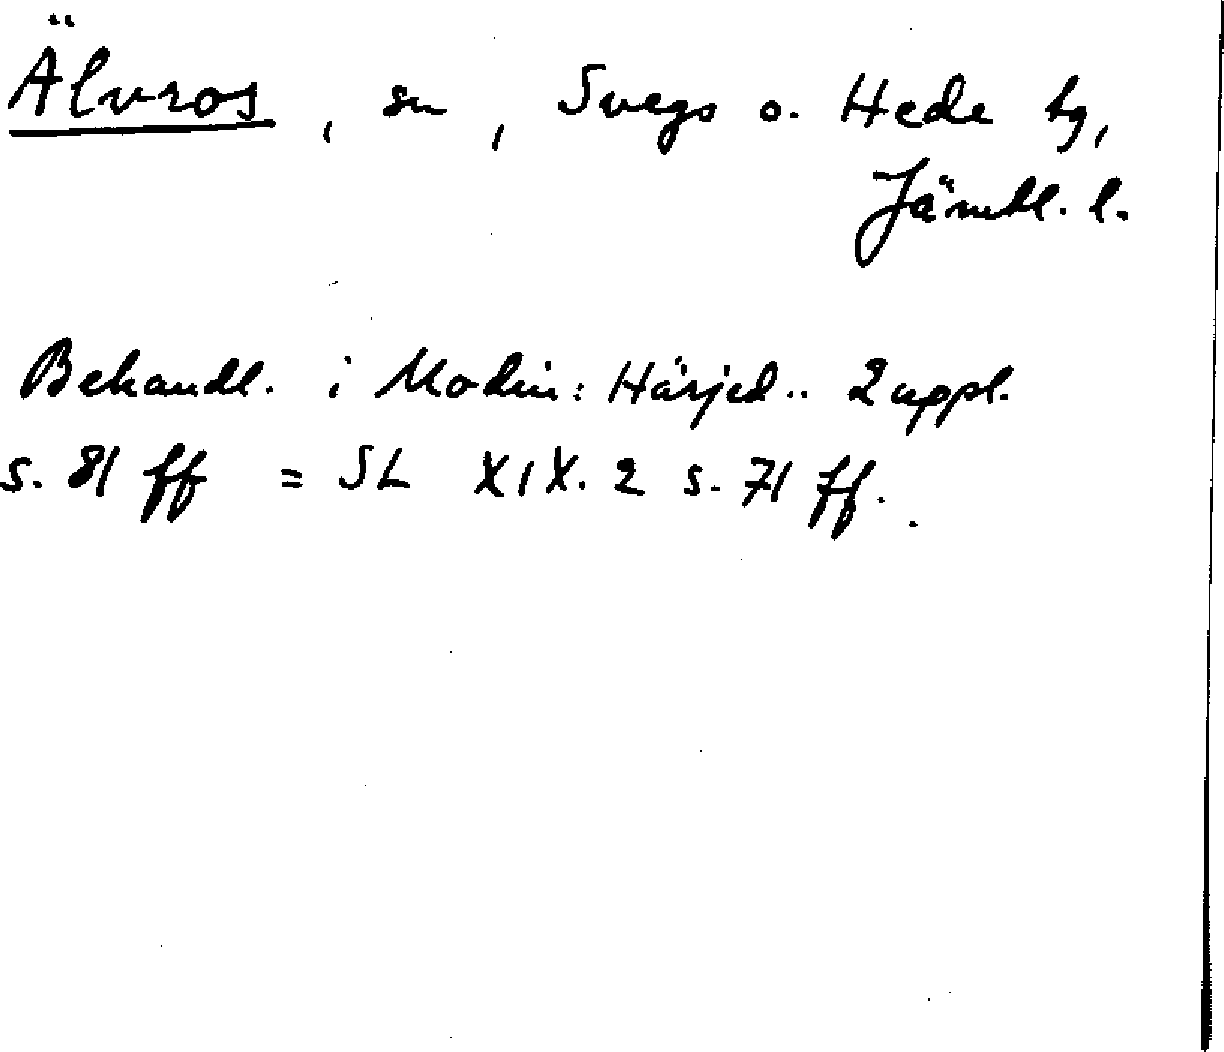 Älvros, sn, Svegs o. Hede tg,
Jämtl. l.
Behandl. i Modin: Härjed.. 2 uppl.
s. 81 ff = SL XIX. 2 s. 71 ff..